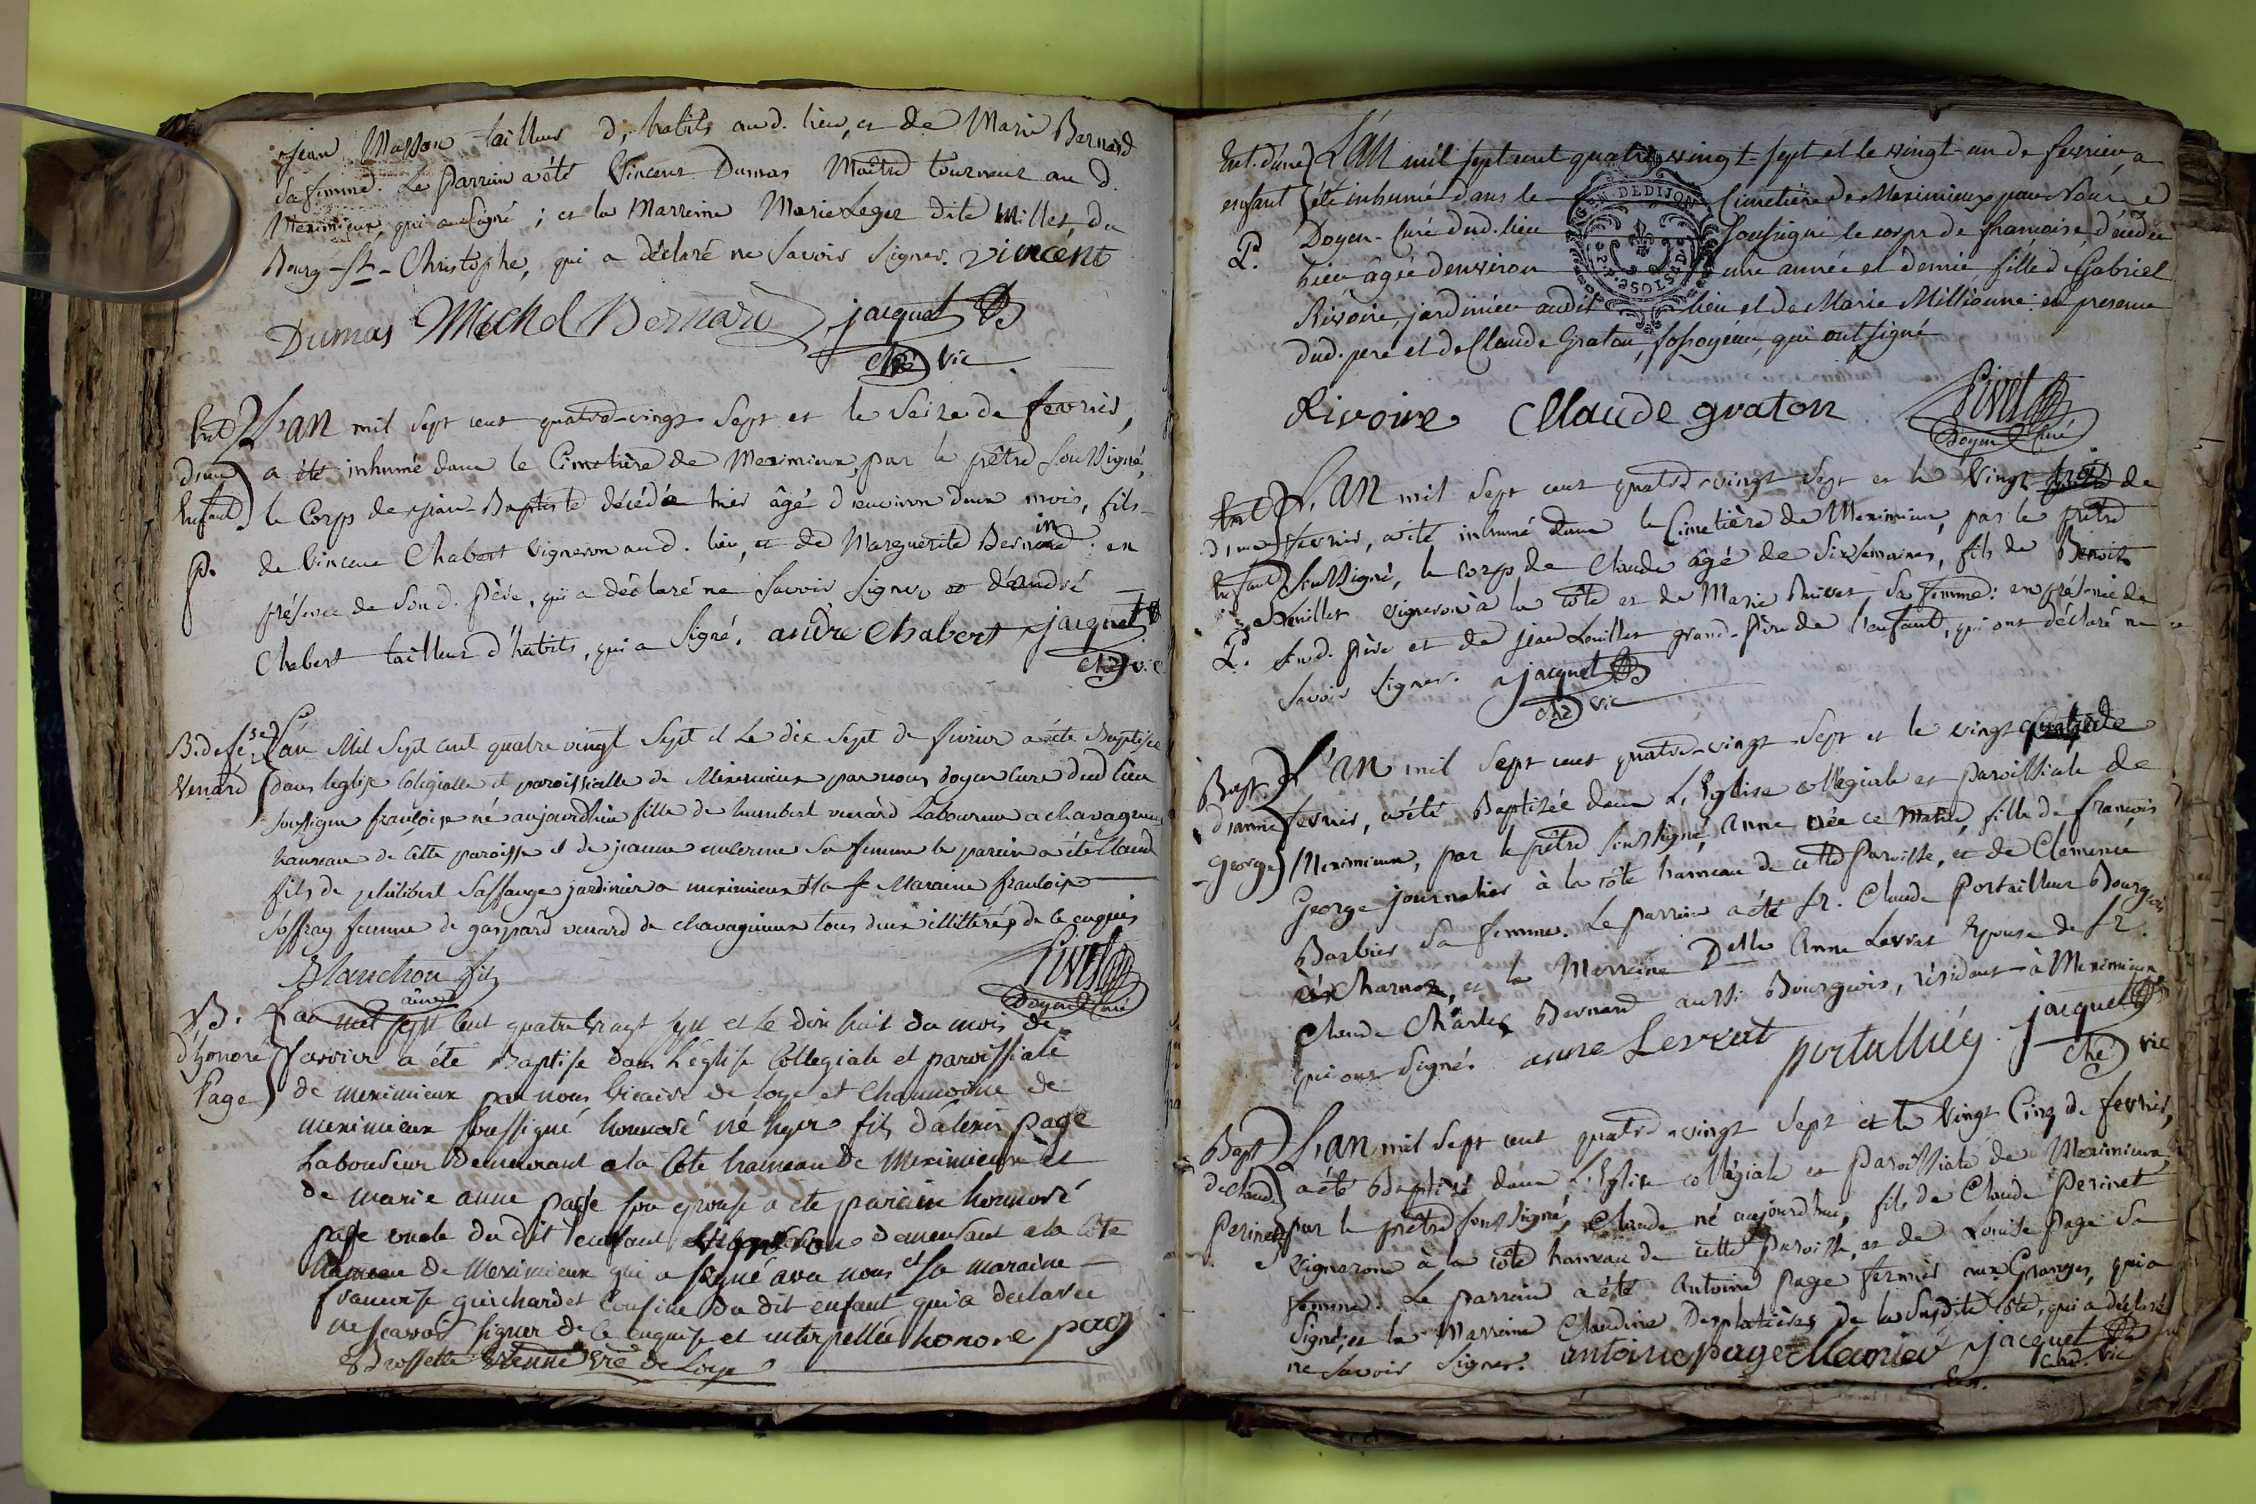 Jean Masson tailleur d'habits aud. lieu, et de Marie Bernard
sa femme. Le Parrain a été Vincent Dumas Maître tourneur au d.
Meximieux, qui a signé ; et la Marreine Marie Leger dite Millet, du
Bourg-St-Christophe, qui a déclaré ne savoir signer. vincent
Dumas Michel Bernard jacquet
che vic
Ent L'an mil sept cent quatre-vingt sept et le seize de fevrier,
d'un a été inhumé dans le Cimetière de Meximieux, par le prêtre soussigné,
Enfant le Corps de Jean-Baptiste décédé hier âgé d'environ deux mois, fils
P. de Vincent Chabert vigneron aud. lieu, et de Marguerite Bernin : en
présence de son d. Père, qui a déclaré ne savoir signer et d'andré
Chabert tailleur d'habits, qui a signé. andré Chabert jacquet
che vic
B. de fse L'an Mil Sept cent quatre vingt sept et le dix sept de fevrier a été Baptisée
Venard dans leglise Colegialle et paroissialle de Meximieux par nous doyen Curé dud lieu
soussigné françoise né aujourdhui fille de humbert venard Laboureur a chavagnieux
hameau de cette paroisse et de jeanne sa femme le parein a été Claude
fils de philibert Saffange jardinier a meximieux et la Maraine françoise
Joffray femme de gaspard venard de chavagnieux tous deux illitterés de ce enquis
Blanchon fils
ainé Livet
Doyen Curé
B. L'an mil sept cent quatre vingt sept et le dix huit du mois de
d'honoré fevrier a été Baptisé dans l'église Collegiale et paroissiale
Page de meximieux par nous vicaire de loye et chanoine de
meximieux soussigné honnoré né hyer fils d'alexis page
Laboureur demeurant a la Cote hameau de Meximieux et
de marie anne page son epouse a ete parain honnoré
page oncle du dit enfant vigneron demeurant a la Cote
hameau de Meximieux qui a signé avec nous et sa maraine
francoise guichardet Cousine du dit enfant qui a declarée
ne scavoir signer de ce enquise et interpellée honore page
Brossette vre de Loye
Ent. d'une L'an mil sept cent quatre vingt-sept et le vingt-un de fevrier a
enfant été inhumé dans le Cimetiere de Meximieux par Nous
P. Doyen-Curé dud. lieu soussigné le corps de francoise décédée
hier âgée d'environ une année et demie fille de Gabriel
Rivoire, jardinier audit lieu et de Marie Millionne : en presence
dud. pere et de Claude Graton, fossoyeur, qui ont signé
Rivoire Claude graton Livet
Doyen Curé
GEN. DE DIJON
Ent L'an mil sept cent quatre-vingt sept et le vingt trois de
d'un fevrier, a été inhumé dans le Cimetière de Meximieux, par le prêtre
Enfant soussigné, le corps de Claude âgé de six semaines, fils de Benoit
Louillet vigneron à la Côte et de Marie sa femme : en présence de
P. sond. Père et de jean Louillet grand-Père de l'enfant, qui ont déclaré ne
savoir signer. jacquet
che vic
Bapt. L'an mil sept cent quatre-vingt sept et le vingt quatre de
d'anne fevrier, a été Baptisée dans L'Eglise collégiale et paroissiale de
George Meximieux, par le prêtre soussigné, anne née ce matin, fille de françois
George journalier à la côte hameau de cette Paroisse, et de Clemence
Barbier sa femme. Le parrain a été Sr. Claude Portailleur Bourgeois
à Charnoz, et la Marreine Delle Anne Levrat Epouse de Sr.
Claude Charles Bernard aussi Bourgeois, résidant à Meximieux,
qui ont signé. anne Levrat portalliée jacquet
che vic
Bapt L'an mil sept cent quatre-vingt sept et le vingt cinq de fevrier,
de Claude a été Baptisé dans L'Eglise collégiale et paroissiale de Meximieux,
Perinet par le prêtre soussigné, Claude né aujourdhui, fils de Claude Perinet
vigneron à la côte hameau de cette Paroisse, et de Louise page sa
femme. Le parrain a été Antoine Page fermier aux Granges, qui a
signé, et la Marreine Claudine Desplatières de la susdite Côte, qui a déclaré
ne savoir signer. antoine page Meunier jacquet
che. vic